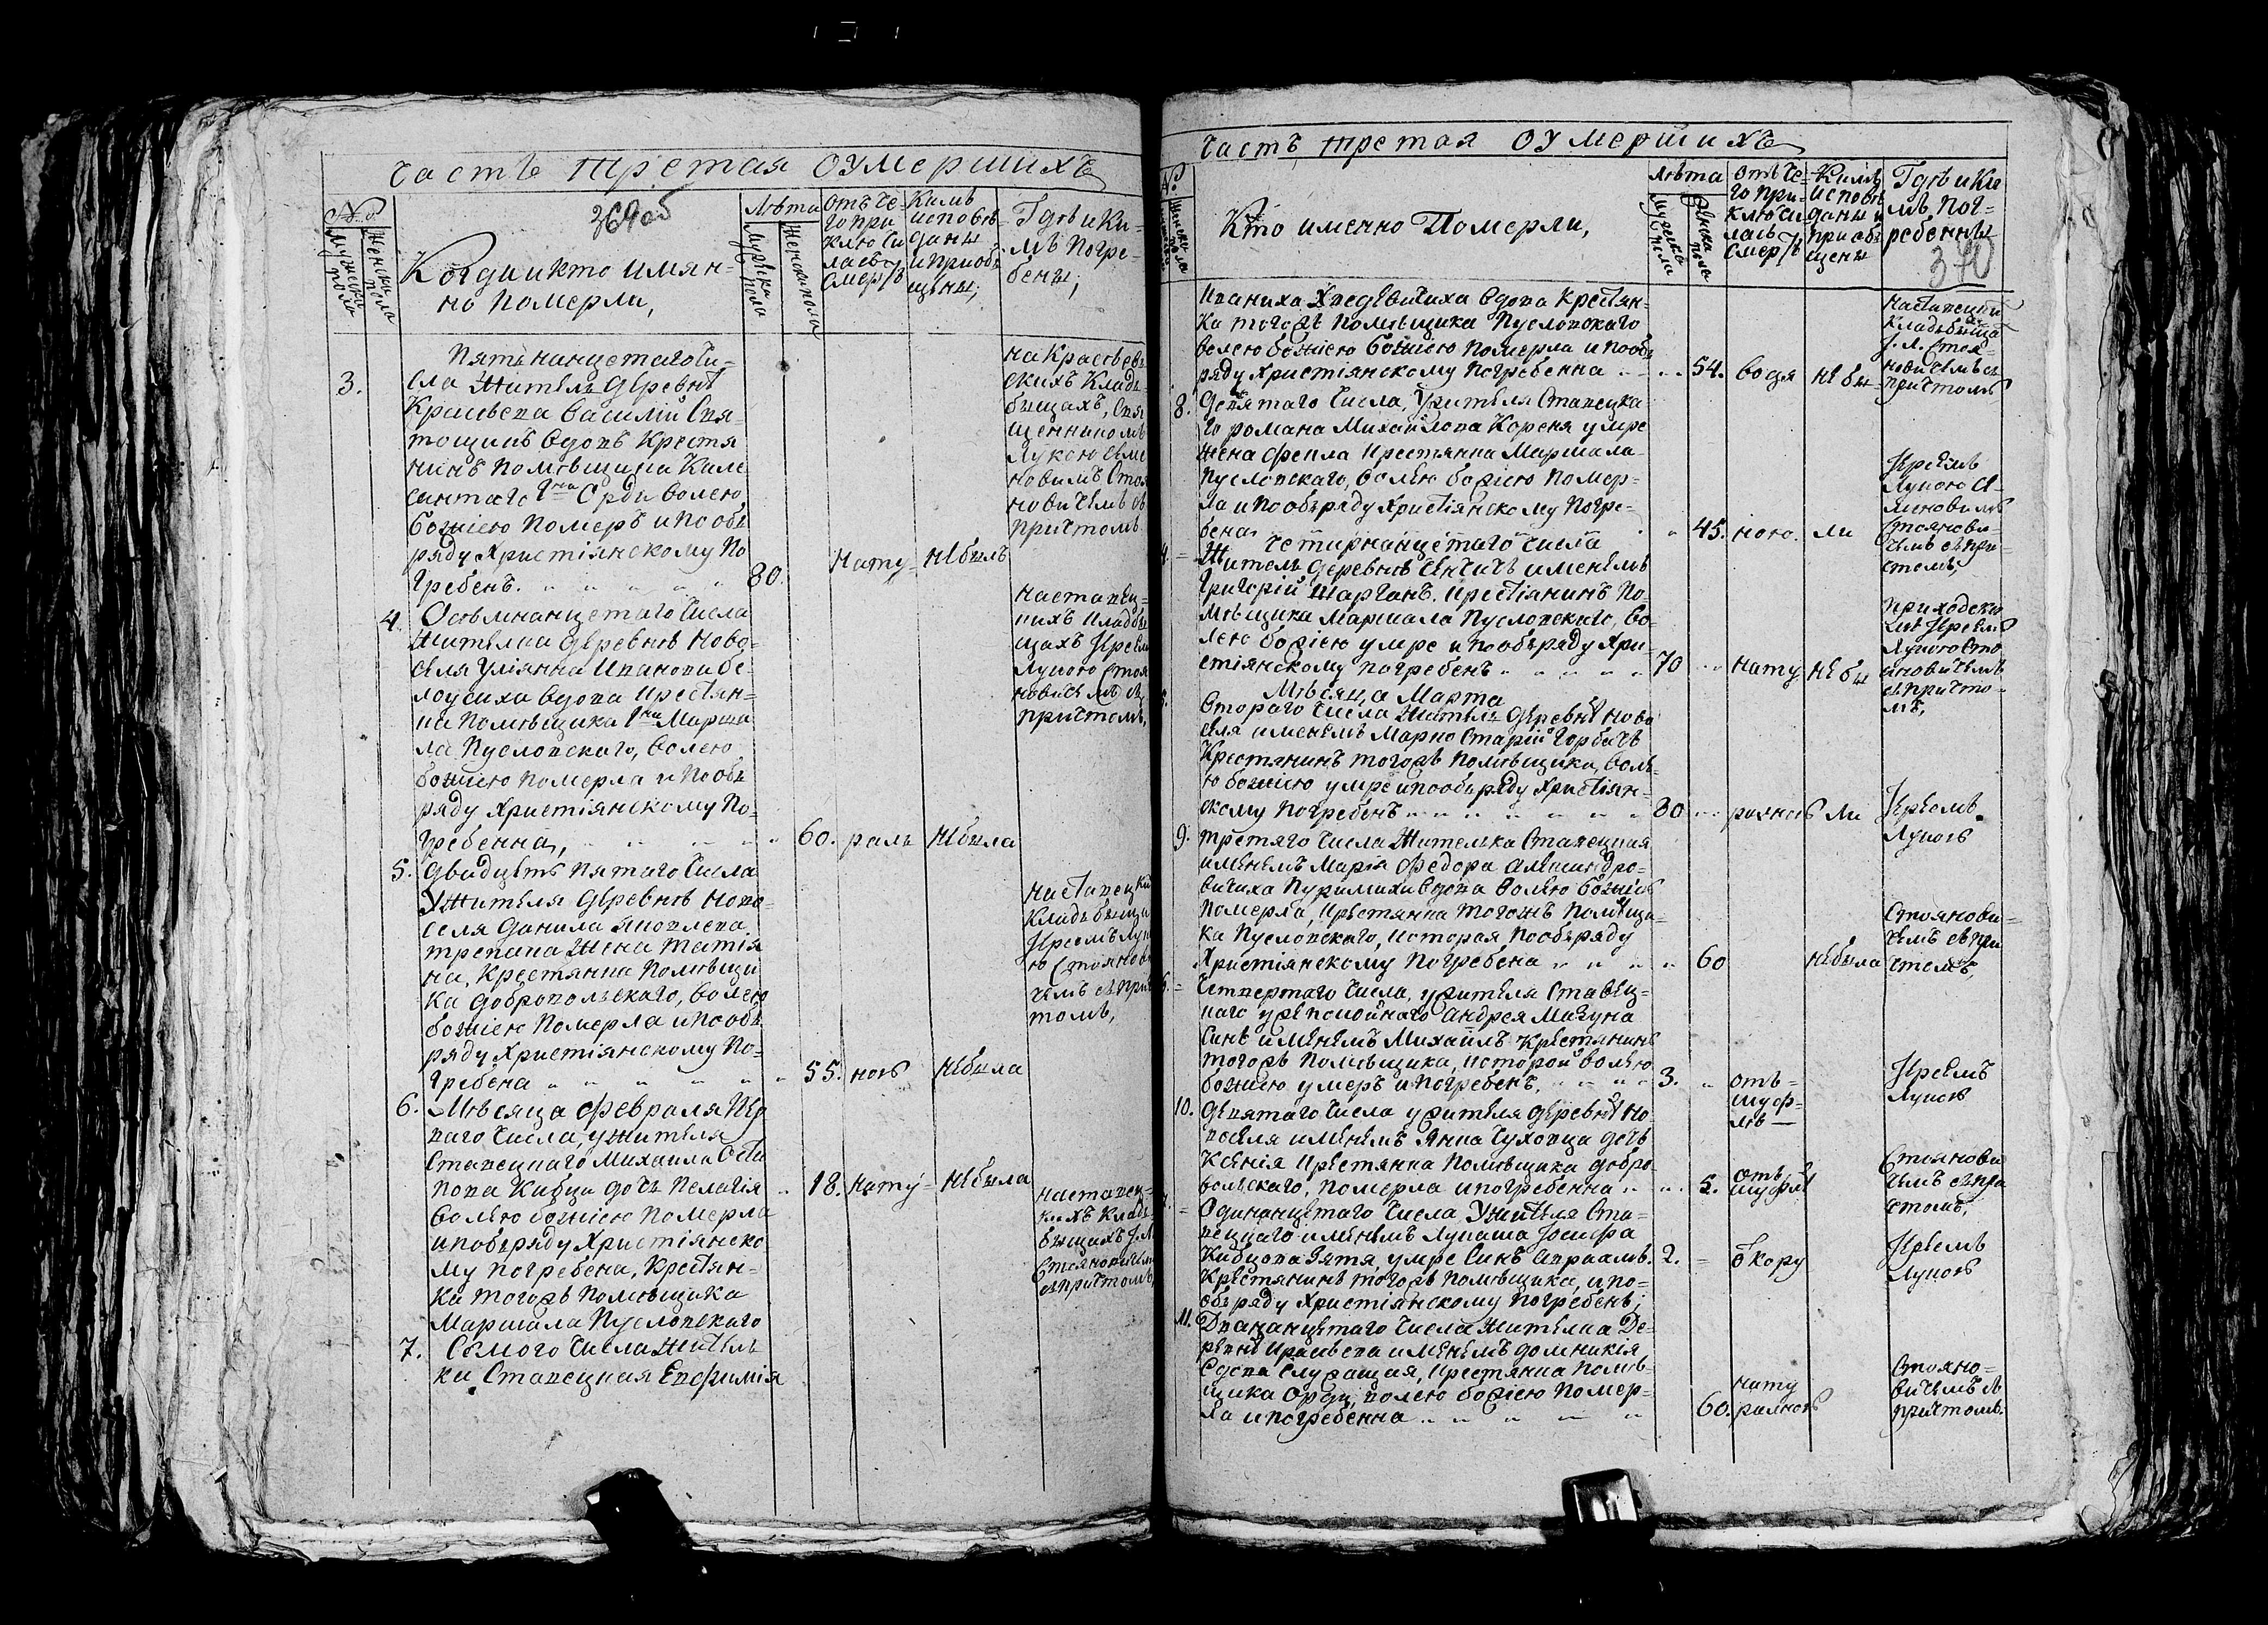 Часть третая оумершихъ
369об
№
мужеска пола
женска пола
Когда и кто имян-
но померли,
Лѣта
мужеска пола
женска пола
Отъ че-
го при
ключи
лась
смерть
Кимъ
исповѣ-
даны
и приобъ
щены,
Где и ки-
мъ погре-
бены,
Пятьнанцетаго чи-
3.
сла житель деревнѣ
Василій
тощикъ вдовъ крестя
нинъ помѣщика
волею
божіею померъ и по объ
ряду христіянскому по
гребенъ.
80.
нату-
небылъ
скихъ кладъ
бищахъ,
Лукою
новичемъ съ
причтомъ
4.
Осѣмнанцетаго числа
жителка деревнѣ ново-
селя Уліянна Иванова бе-
лоусиха вдова крестян-
ка помѣщика Марша
ла Пусловскаго, волею
божіею померла и по объ
ряду христіянскому по-
гребенна,
60.
раль
небыла
на ставец-
кихъ кладби
щахъ Іереем
Лукою Стоя
новичемъ съ
причтомъ,
5.
Двадцеть пятаго числа
у жителя деревнѣ ново-
селя Данила Яковлева
жена Татія
на, крестянка помѣщи
ка Добровольскаго, волею
божіею померла и по объ
ряду христіянскому по-
гребена
55.
ногѣ
небыла
на ставецки
кладъбища
Іереемъ Лук
ю Станов
чемъ съ при
томъ,
6.
Мѣсяца февраля пер
ваго числа, у жителя
ставецкаго Михаила
Кибци дочъ Пелагія
18.
нату-
небыла
волею божіею померла
и по объряду христіянско
му погребена, крестян-
ка тогожъ помѣщика
Маршала Пусловскаго
на ставец-
кихъ кладъ-
бищахъ І. Л.
Стояновичем
съ причтомъ,
7.
Семого числа житель
ки ставецкая Евфимія
Часть третая оумершихъ
№
женска пола
Кто именно померли,
Лѣта
мужеска пола
женска пола
Отъ че-
го при-
ключи-
лась
смерть
Кимъ
исповѣ
даны и
приобъ
щены
Где и ки
мъ пог-
ребенны
370
Иваниха вдова крестян-
ка тогожъ помѣщика Пусловскаго
волею божіею божіею померла и по объ
ряду христіянскому погребенна
54.
водя
не бы-
на ставецки
кладъбища
І. Л. Стоя-
новичемъ съ
причтомъ
8.
Девятаго числа, у жителя ставецка-
го Романа Михайлова Кореня умре
жена Фекла крестянка Маршала
Пусловскаго, волею божіею помер-
ла и по объряду христіянскому погре-
бена
45.
ного.
ли
Іреемъ
Лукою
Стоянови-
чемъ съ при-
чтомъ,
4.
Четирнанцетаго числа
Житель деревнѣ именемъ
Григорій крестіянинъ по-
мѣщика Маршала Пусловскаго, во-
лею божіею умре и по объряду хри-
стіянскому погребенъ
70
нату
не бы
приходски
Іреем
Лукою Сто
яновичемъ
съ причто-
мъ,
5.
Мѣсяца Марта
Втораго числа житель деревнѣ ново
селя именемъ Марко Старій Горбачъ
Крестянинъ тогожъ помѣщика, воле-
ю божіею умре и по объряду христіян-
скому погребенъ
80
ли
Іреемъ
Лукою
9.
Третяго числа жителька ставецкая
именемъ Марія Федора Александро-
вичиха вдова волею божіею
померла, крестянка тогожъ помѣщи-
ка Пусловскаго, которая по объряду
христіянскому погребена
60
небыла
Стоянови-
чемъ съ при
чтомъ,
6.
Четвертаго числа, у жителя ставец-
каго упокойнаго Андрея
синъ именемъ Михаилъ крестянинъ
тогожъ помѣщика, которой волею
божіею умеръ и погребенъ,
3.
отъ
Іреемъ
Лукою
10.
Девятаго числа у жителя деревнѣ но-
воселя именемъ Янка дочъ
Ксенія крестянка помѣщика Добро-
вольскаго, померла и погребенна
5.
отъ
Стоянови
чемъ съ при
чтомъ,
Одинанцетаго числа у жителя ста-
вецкаго именемъ Лукаша Іосифа
Кибцова зятя, умре синъ Авраамъ.
2.
Ѿ кору
Іреемъ
Лукою
Крестянинъ тогожъ помѣщика, и по-
объряду христіянскому погребенъ;
11.
Двацанцетаго числа жителка де-
ревнѣ именемъ Домникія
вдова крестянка помѣ-
щика волею божіею помер-
ла и погребенна
60.
нату
Стояно-
вичемъ съ
причтомъ.